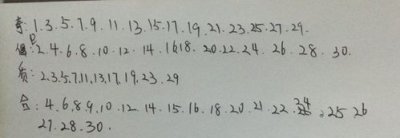 奇: 1.3.5.7.9.11.13.15.17.19.21.23.25.27.29.
偶: 2.4.6.8.10.12.14.16.18.20.22.24.26.28.30.
质: 2.3.5.7.11.13.17.19.23.29
合: 4.6.8.9.10.12.14.15.16.18.20.21.22.24.25.26
27.28.30.